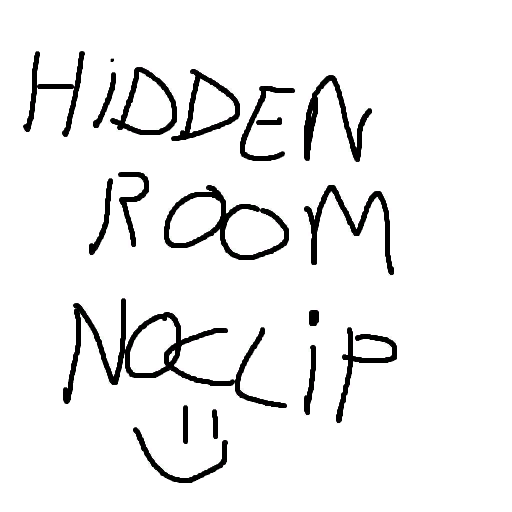 HiDDEN
ROOM
NOCLiP